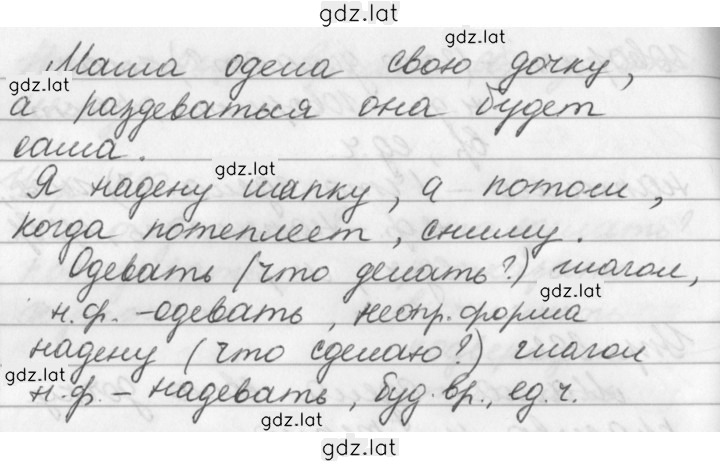 gdz.lat
Маша одела свою дочку,
а раздеваться она будет
сама.
Я надену шапку, а потом,
когда потеплеет, сниму.
Одевать (что делать?) глагол,
н.ф. -одевать, неопр. форма
надену (что сделаю?) глагол
н.ф. - надевать, буд. вр., ед. ч.
gdz.lat
gdz.lat
gdz.lat
gdz.lat
gdz.lat
gdz.lat
gdz.lat